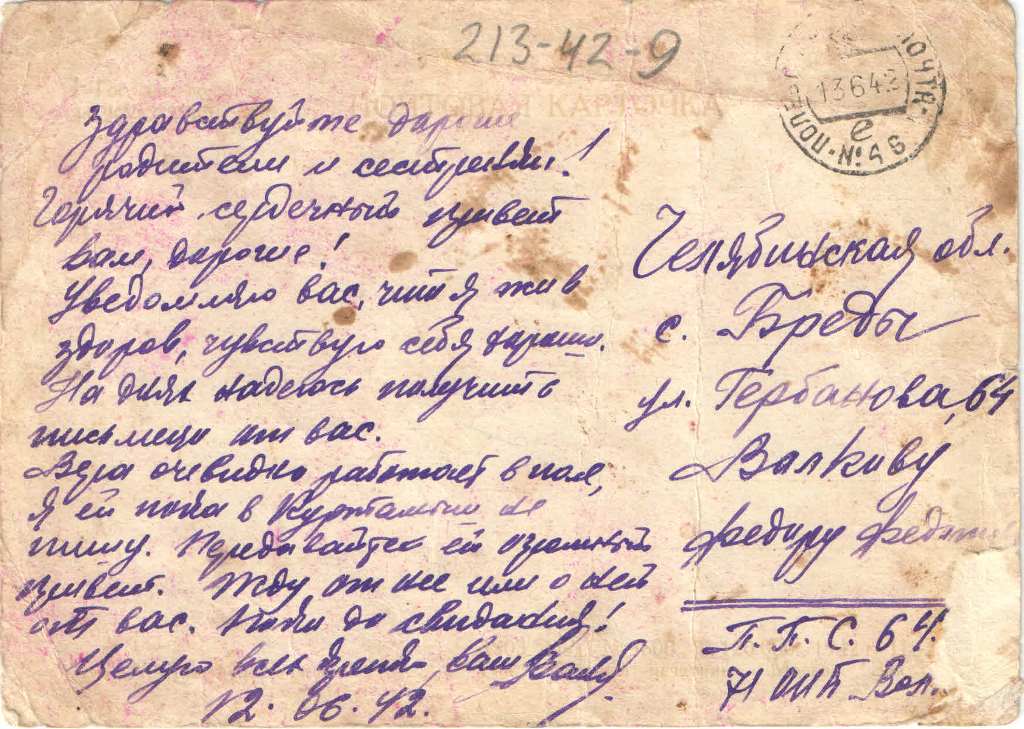 213-42-9
ПОЧТОВАЯ КАРТОЧКА
13 6 42
е
№ 46
Здравствуйте дорогие
родители и сестренки!
Горячий сердечный привет
вам, дорогие!
Уведомляю вас, что я жив
здоров, чувствую себя хорошо.
На днях надеюсь получить
письмецо от вас.
Вера очевидно работает в поле,
Я ей пока в Куртамыш не
пишу. Передавайте ей огромный
привет. Жду от нее или о ней
от вас. Пока до свидания!
Целую всех крепко, ваш
12.06.42.
Челябинская обл.
с. Бреды
ул. Гербанова, 64
Волкову
Федору
П.П.С. 64.
71 Вол.